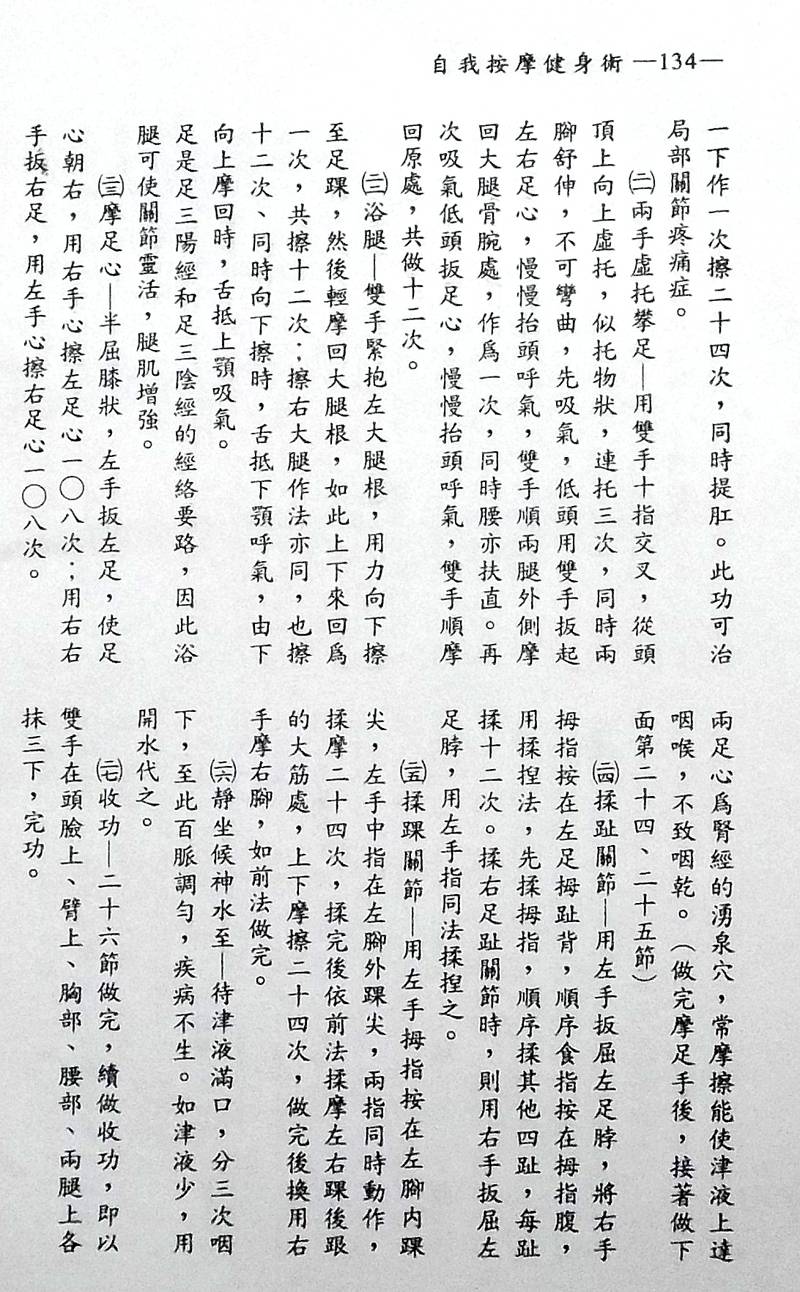 自我按摩健身術 —134—
一下作一次擦二十四次，同時提肛。此功可治
局部關節疼痛症。
㈡兩手虛托攀足—用雙手十指交叉，從頭
頂上向上虛托，似托物狀，連托三次，同時兩
腳舒伸，不可彎曲，先吸氣，低頭用雙手扳起
左右足心，慢慢抬頭呼氣，雙手順兩腿外側摩
回大腿骨腕處，作爲一次，同時腰亦扶直。再
次吸氣低頭扳足心，慢慢抬頭呼氣，雙手順摩
回原處，共做十二次。
㈡浴腿—雙手緊抱左大腿根，用力向下擦
至足踝，然後輕摩回大腿根，如此上下來回爲
一次，共擦十二次；擦右大腿作法亦同，也擦
十二次、同時向下擦時，舌抵下顎呼氣，由下
向上摩回時，舌抵上顎吸氣。
足是足三陽經和足三陰經的經絡要路，因此浴
腿可使關節靈活，腿肌增強。
㉓摩足心—半屈膝狀，左手扳左足，使足
心朝右，用右手心擦左足心一〇八次；用右右
手扳右足，用左手心擦右足心一〇八次。
兩足心爲腎經的湧泉穴，常摩擦能使津液上達
咽喉，不致咽乾。（做完摩足手後，接著做下
面第二十四、二十五節）
㉔揉趾關節—用左手扳屈左足脖，將右手
拇指按在左足拇趾背，順序食指按在拇指腹，
用揉揑法，先揉拇指，順序揉其他四趾，每趾
揉十二次。揉右足趾關節時，則用右手扳屈左
足脖，用左手指同法揉揑之。
㉕揉踝關節—用左手拇指按在左腳內踝
尖，左手中指在左腳外踝尖，兩指同時動作，
揉摩二十四次，揉完後依前法揉摩左右踝後跟
的大筋處，上下摩擦二十四次，做完後換用右
手摩右腳，如前法做完。
㉖靜坐候神水至—待津液滿口，分三次咽
下，至此百脈調勻，疾病不生。如津液少，用
開水代之。
㉗收功—二十六節做完，續做收功，即以
雙手在頭臉上、臂上、胸部、腰部、兩腿上各
抹三下，完功。